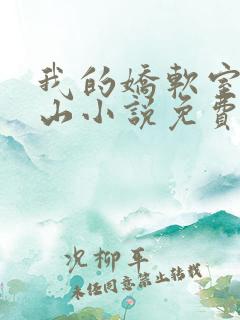 我的嬌軟室
山小説免費
况柳平
未經同意禁止轉載